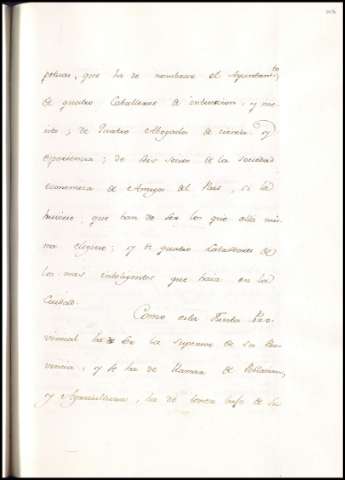 que ha de nombrar el Ayuntam.to
de quatro Caballeros de instruccion, y me-
rito; de quatro Abogados de ciencia y
experiencia; de dos Socios de la Sociedad
economica de Amigos del Pais, si la
huviere, que han de ser los que ella mis-
ma eligiere; y de quatro Labradores de
los mas inteligentes que haia en la
Ciudad.
Como esta Junta Pro-
vincial ha de ser la suprema de su Pro-
vincia, y se ha de llamar de Poblacion,
y Agricultura, ha de tener baxo de su